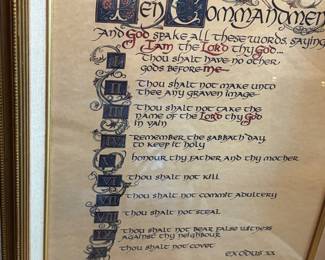 Ten Commandmen
And God spake all these words, saying
I am the Lord thy God...
I Thou shalt have no other
gods before me
II Thou shalt not make unto
thee any graven image
III Thou shalt not take the
name of the Lord thy God
in vain
IV Remember the Sabbath day,
to keep it holy
V Honour thy father and thy mother
VI Thou shalt not kill
VII Thou shalt not commit adultery
VIII Thou shalt not steal
IX Thou shalt not bear false witness
against thy neighbour
X Thou shalt not covet
Exodus XX